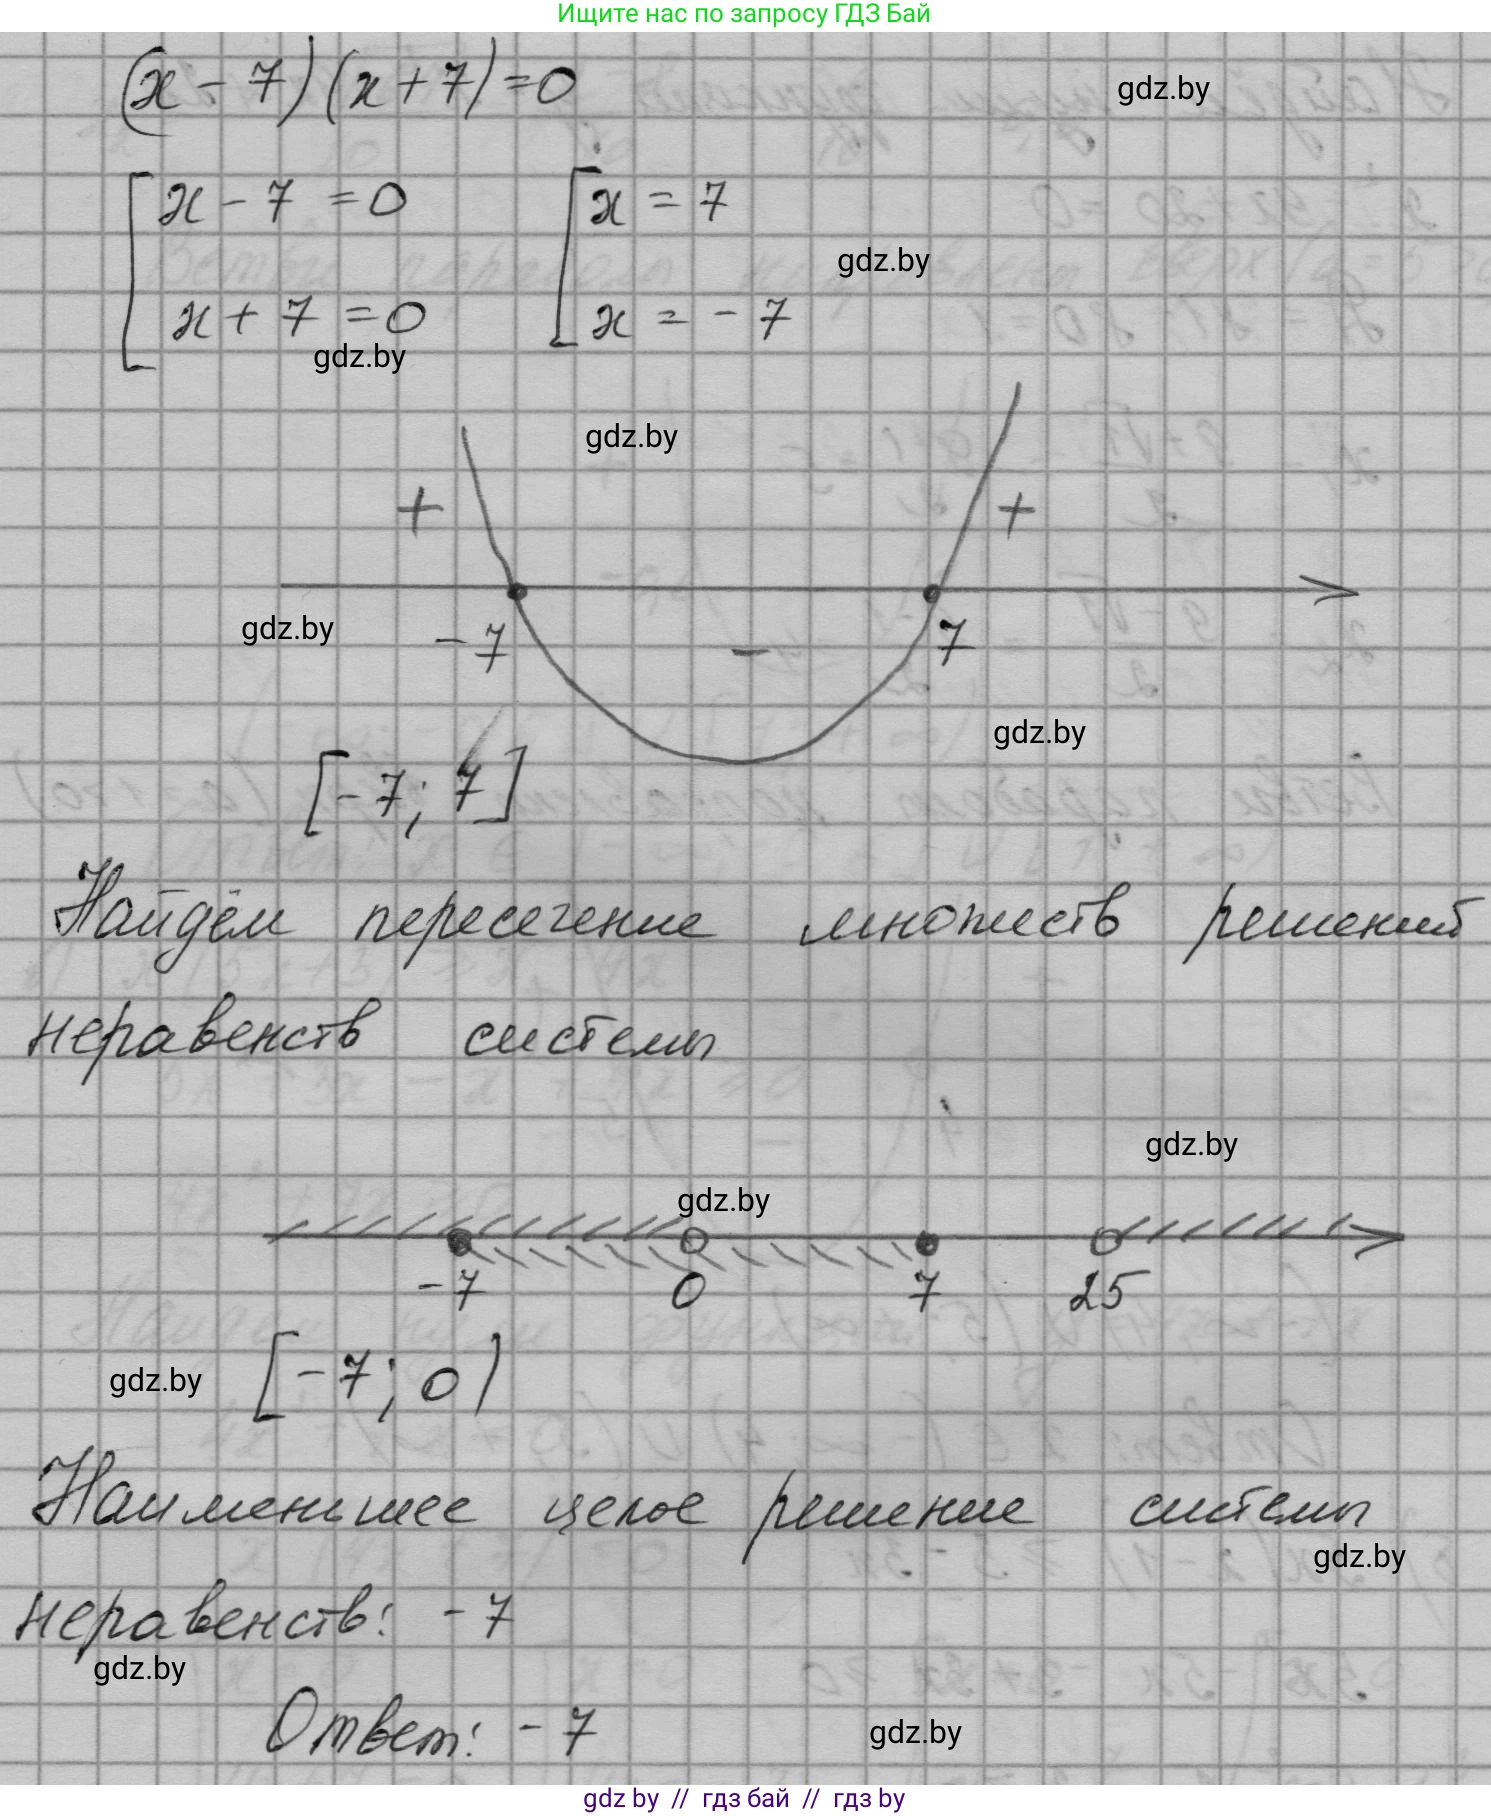 Ищите нас по запросу ГДЗ Бай
(x - 7)(x + 7) = 0
gdz.by
x - 7 = 0 x = 7
gdz.by
x + 7 = 0 x = - 7
gdz.by
gdz.by
+ +
gdz.by
- 7 - 7
gdz.by
[-7; 7]
Найдём пересечение множеств решений
неравенств системы
gdz.by
gdz.by
-7 0 7 25
gdz.by
[-7; 0)
Наименьшее целое решение системы
gdz.by
неравенств: -7
gdz.by
Ответ: -7
gdz.by
gdz.by // гдз бай // гдз by